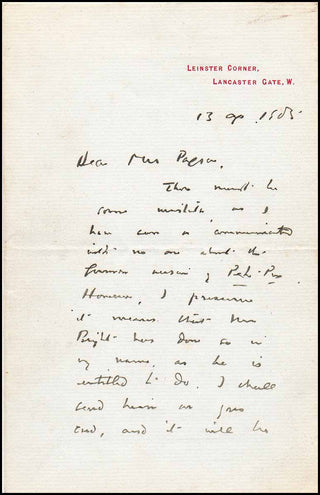 LEINSTER CORNER,
LANCASTER GATE, W.
13 ap. 1905
Dear Mrs
There must be
some mistake, as I
have communicated
with no one about the
German version of Peter Pan
However, I presume
it means that Mr
has done so in
my name, as he is
entitled to do. I shall
send him on your
and, and it will be